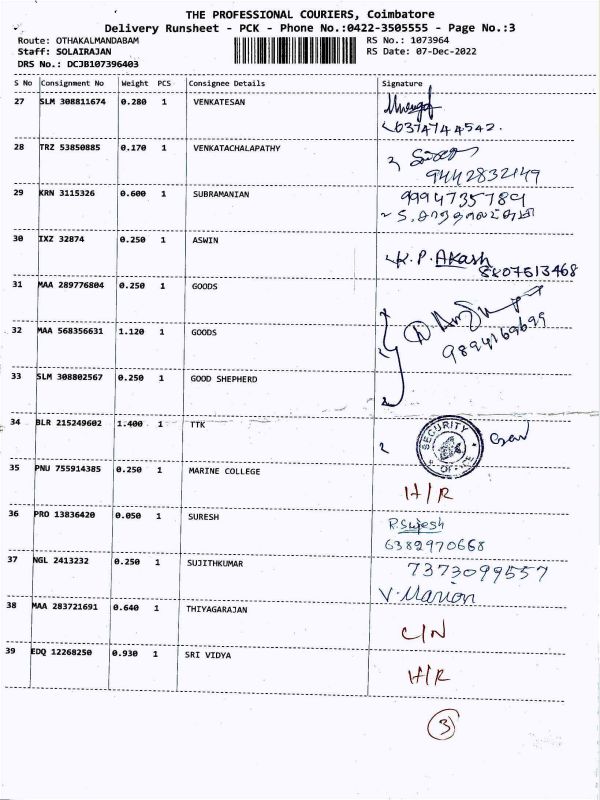 THE PROFESSIONAL COURIERS, Coimbatore
Delivery Runsheet - PCK - Phone No.:0422-3505555 - Page No.:3
Route: OTHAKALMANDABAM RS No.: 1073964
Staff: SOLAIRAJAN RS Date: 07-Dec-2022
DRS No.: DCJB107396403
S No Consignment No Weight PCS Consignee Details Signature
27 SLM 308811674 0.280 1 VENKATESAN
6374744542.
28 TRZ 53850885 0.170 1 VENKATACHALAPATHY
9442832149
29 KRN 3115326 0.600 1 SUBRAMANIAN 9994735789
30 IXZ 32874 0.250 1 ASWIN K.P.Akash
8807613468
31 MAA 289776804 0.250 1 GOODS
32 MAA 568356631 1.120 1 GOODS 9894169699
33 SLM 308802567 0.250 1 GOOD SHEPHERD
34 BLR 215249602 1.400 1 TTK SECURITY
35 PNU 755914385 0.250 1 MARINE COLLEGE H/R
36 PRO 13836420 0.050 1 SURESH R.Sujesh
6382970668
37 NGL 2413232 0.250 1 SUJITHKUMAR 7373099557
V.Marion
38 MAA 283721691 0.640 1 THIYAGARAJAN C/N
39 EDQ 12268250 0.930 1 SRI VIDYA H/R
3